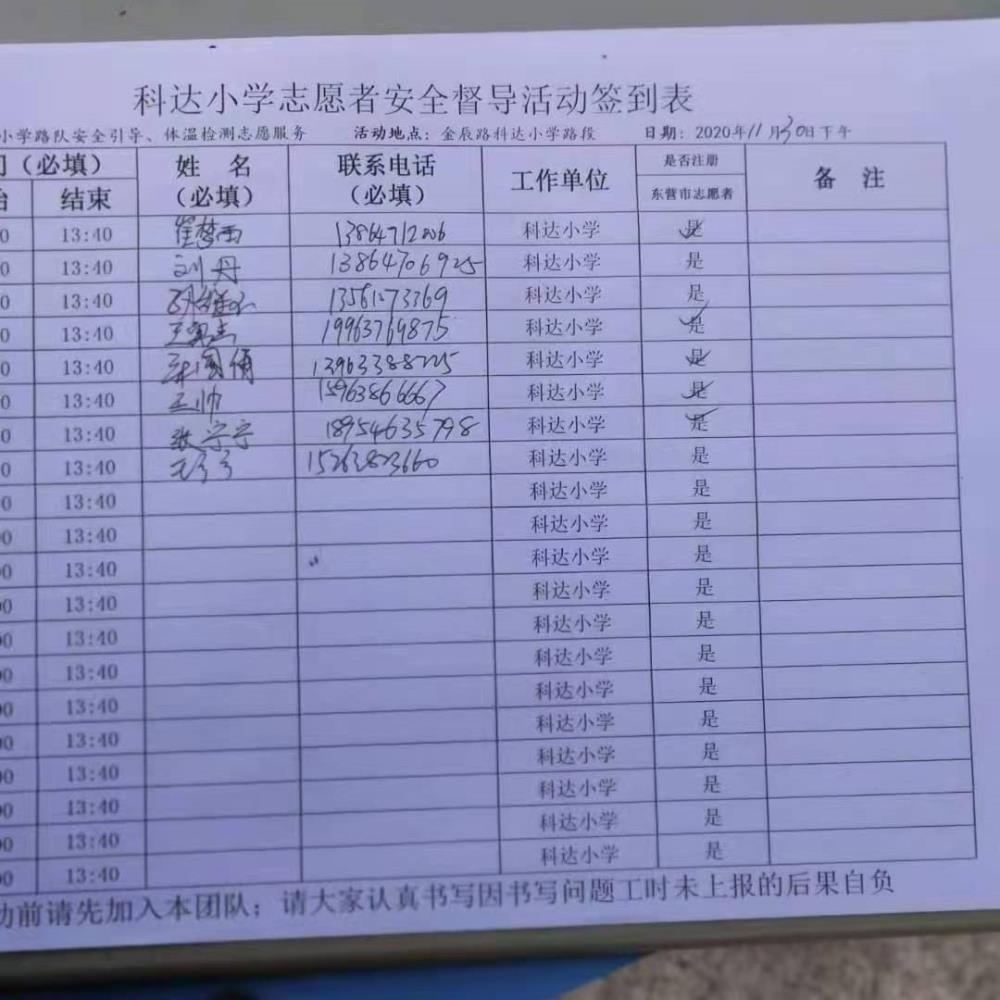 科达小学志愿者安全督导活动签到表
小学路队安全引导、体温检测志愿服务 活动地点：金辰路科达小学路段 日期：2020年11月30日下午
（必填） 姓 名（必填） 联系电话（必填） 工作单位 是否注册东营市志愿者 备 注
结束
0 13:40 崔梦雨 科达小学 是
0 13:40 刘丹 13864706925 科达小学 是
0 13:40 13561273369 科达小学 是
0 13:40 19963769875 科达小学 是
0 13:40 13963388225 科达小学 是
0 13:40 王帅 15963866667 科达小学 是
0 13:40 张宁宁 18954635798 科达小学 是
0 13:40 15263823660 科达小学 是
0 13:40 科达小学 是
0 13:40 科达小学 是
0 13:40 科达小学 是
00 13:40 科达小学 是
00 13:40 科达小学 是
00 13:40 科达小学 是
00 13:40 科达小学 是
00 13:40 科达小学 是
00 13:40 科达小学 是
00 13:40 科达小学 是
00 13:40 科达小学 是
00 13:40 科达小学 是
动前请先加入本团队；请大家认真书写因书写问题工时未上报的后果自负